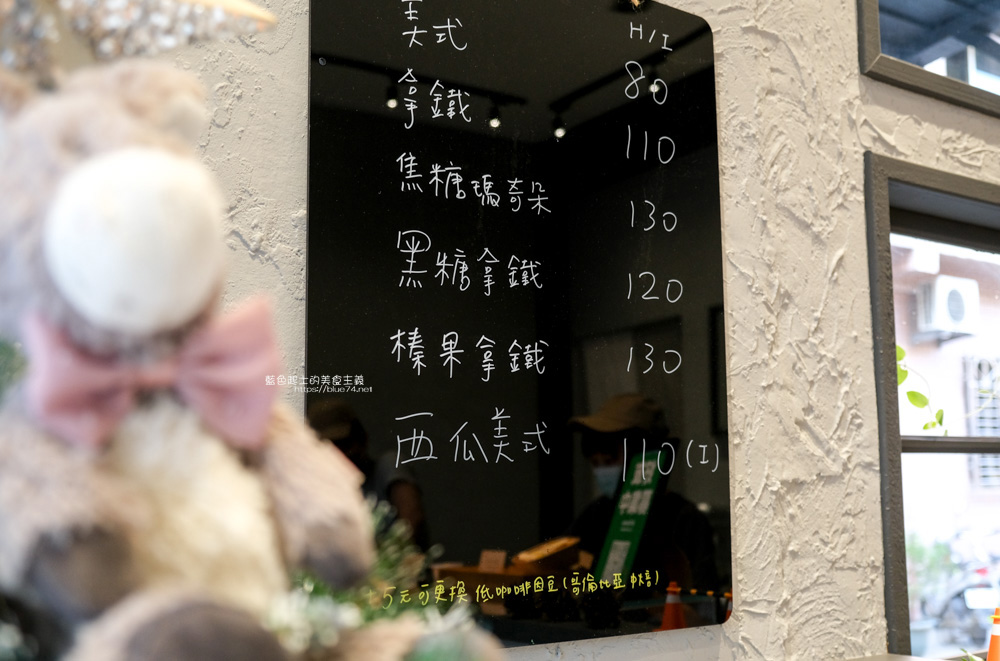 美式 H/I
80
拿鐵 110
焦糖瑪奇朵 130
黑糖拿鐵 120
榛果拿鐵 130
西瓜美式 110(I)
+5元可更換低咖啡因豆(哥倫比亞中焙)
藍色起士的美食主義
https://blue74.net